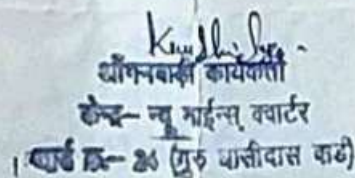 आँगनबाड़ी कार्यकर्ता
केन्द्र- न्यू माईन्स् क्वार्टर
वार्ड क्र- 26 (गुरु घासीदास वार्ड)